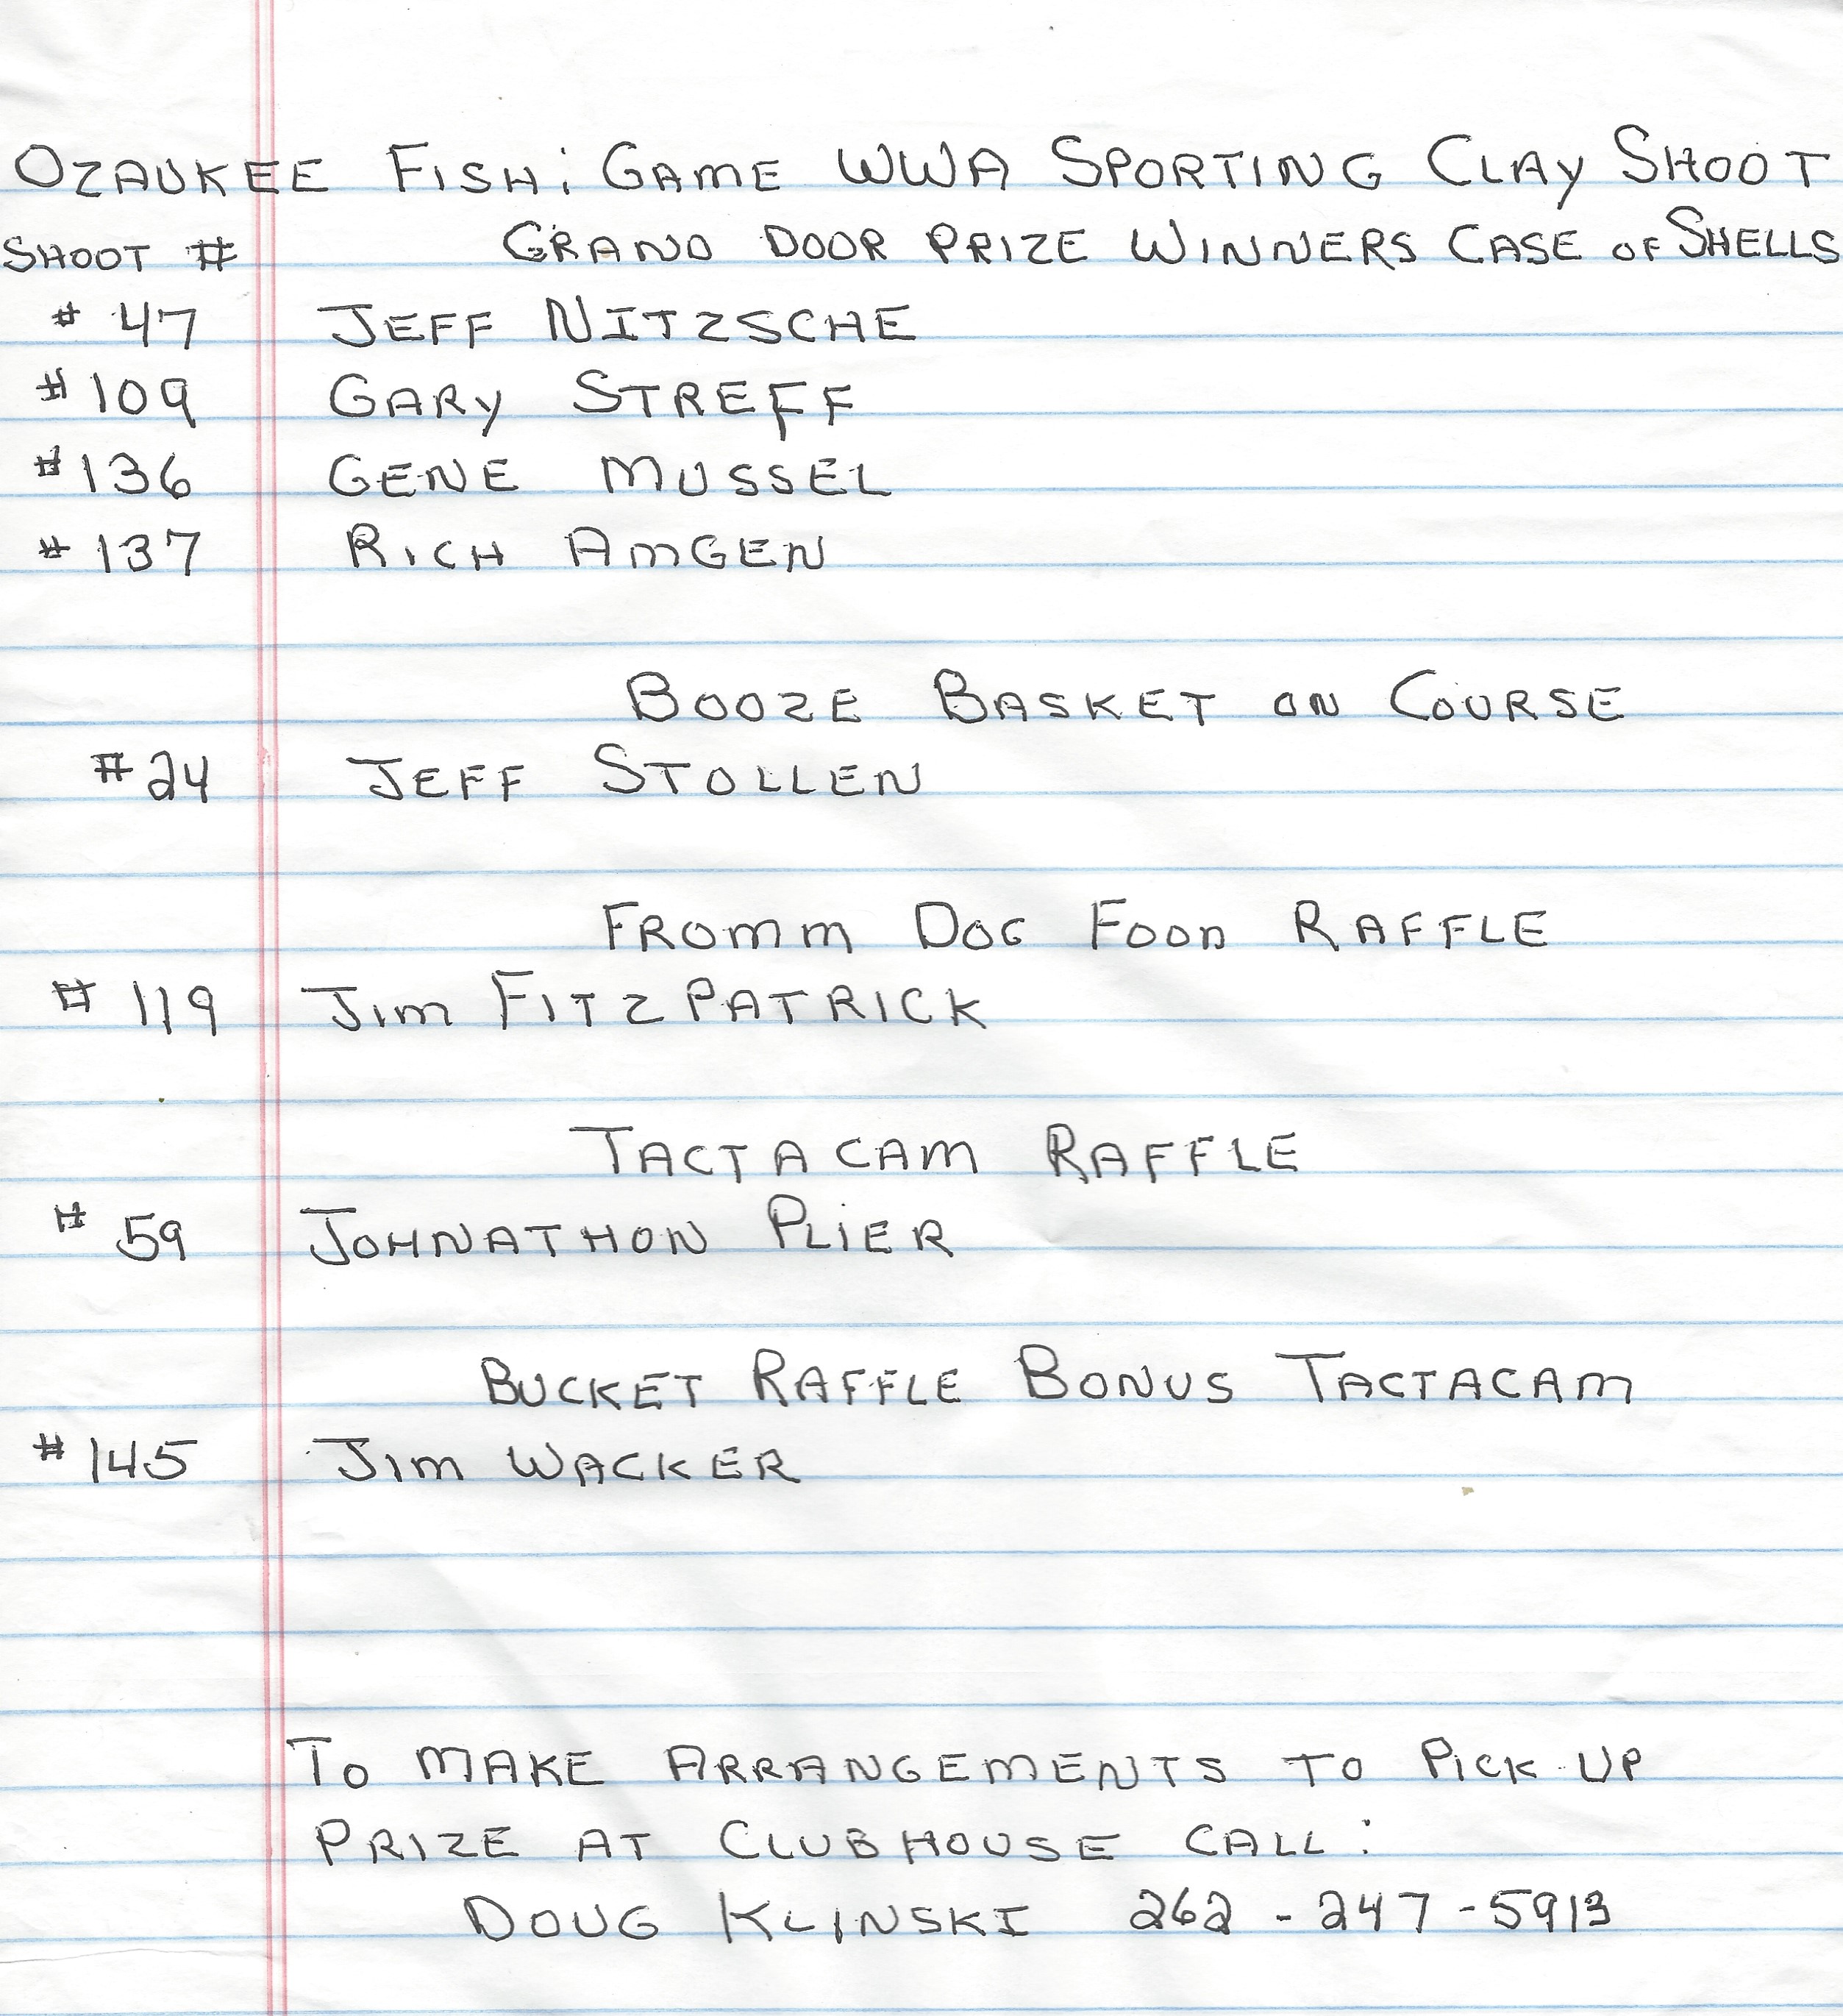 OZAUKEE FISH ; GAME WWA SPORTING CLAY SHOOT
SHOOT # GRAND DOOR PRIZE WINNERS CASE OF SHELLS
# 47 JEFF NITZSCHE
# 109 GARY STREFF
# 136 GENE MUSSEL
# 137 RICH AMGEN
BOOZE BASKET ON COURSE
# 24 JEFF STOLLEN
FROMM DOG FOOD RAFFLE
# 119 JIM FITZPATRICK
TACTACAM RAFFLE
# 59 JOHNATHON PLIER
BUCKET RAFFLE BONUS TACTACAM
# 145 JIM WACKER
TO MAKE ARRANGEMENTS TO PICK UP
PRIZE AT CLUBHOUSE CALL :
DOUG KLINSKI 262 - 247 - 5913